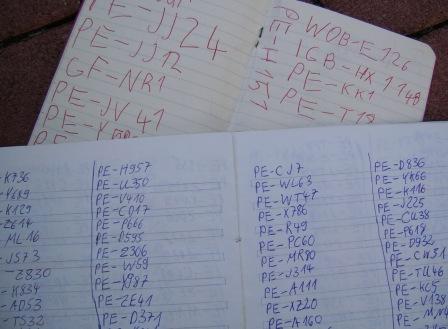 PE-JJ24
PE-JJ12
GF-NR1
PE-JV41
WOB-E126
IGB-HX1148
PE-KK1
PE-T18
-K736
-Y689
-K129
-ZE14
-ML16
-JS73
-Z830
-K834
-AD53
-TS32
PE-H957
PE-UL50
PE-V410
PE-CD17
PE-P666
PE-D595
PE-Z306
PE-W59
PE-X987
PE-ZE41
PE-D371
PE-CJ7
PE-WL63
PE-WT47
PE-X786
PE-R49
PE-PC60
PE-MR80
PE-J314
PE-A111
PE-XZ20
PE-A160
PE-D836
PE-YK66
PE-K116
PE-J225
PE-CU38
PE-P618
PE-D932
PE-CW51
PE-TU46
PE-KC5
PE-V138